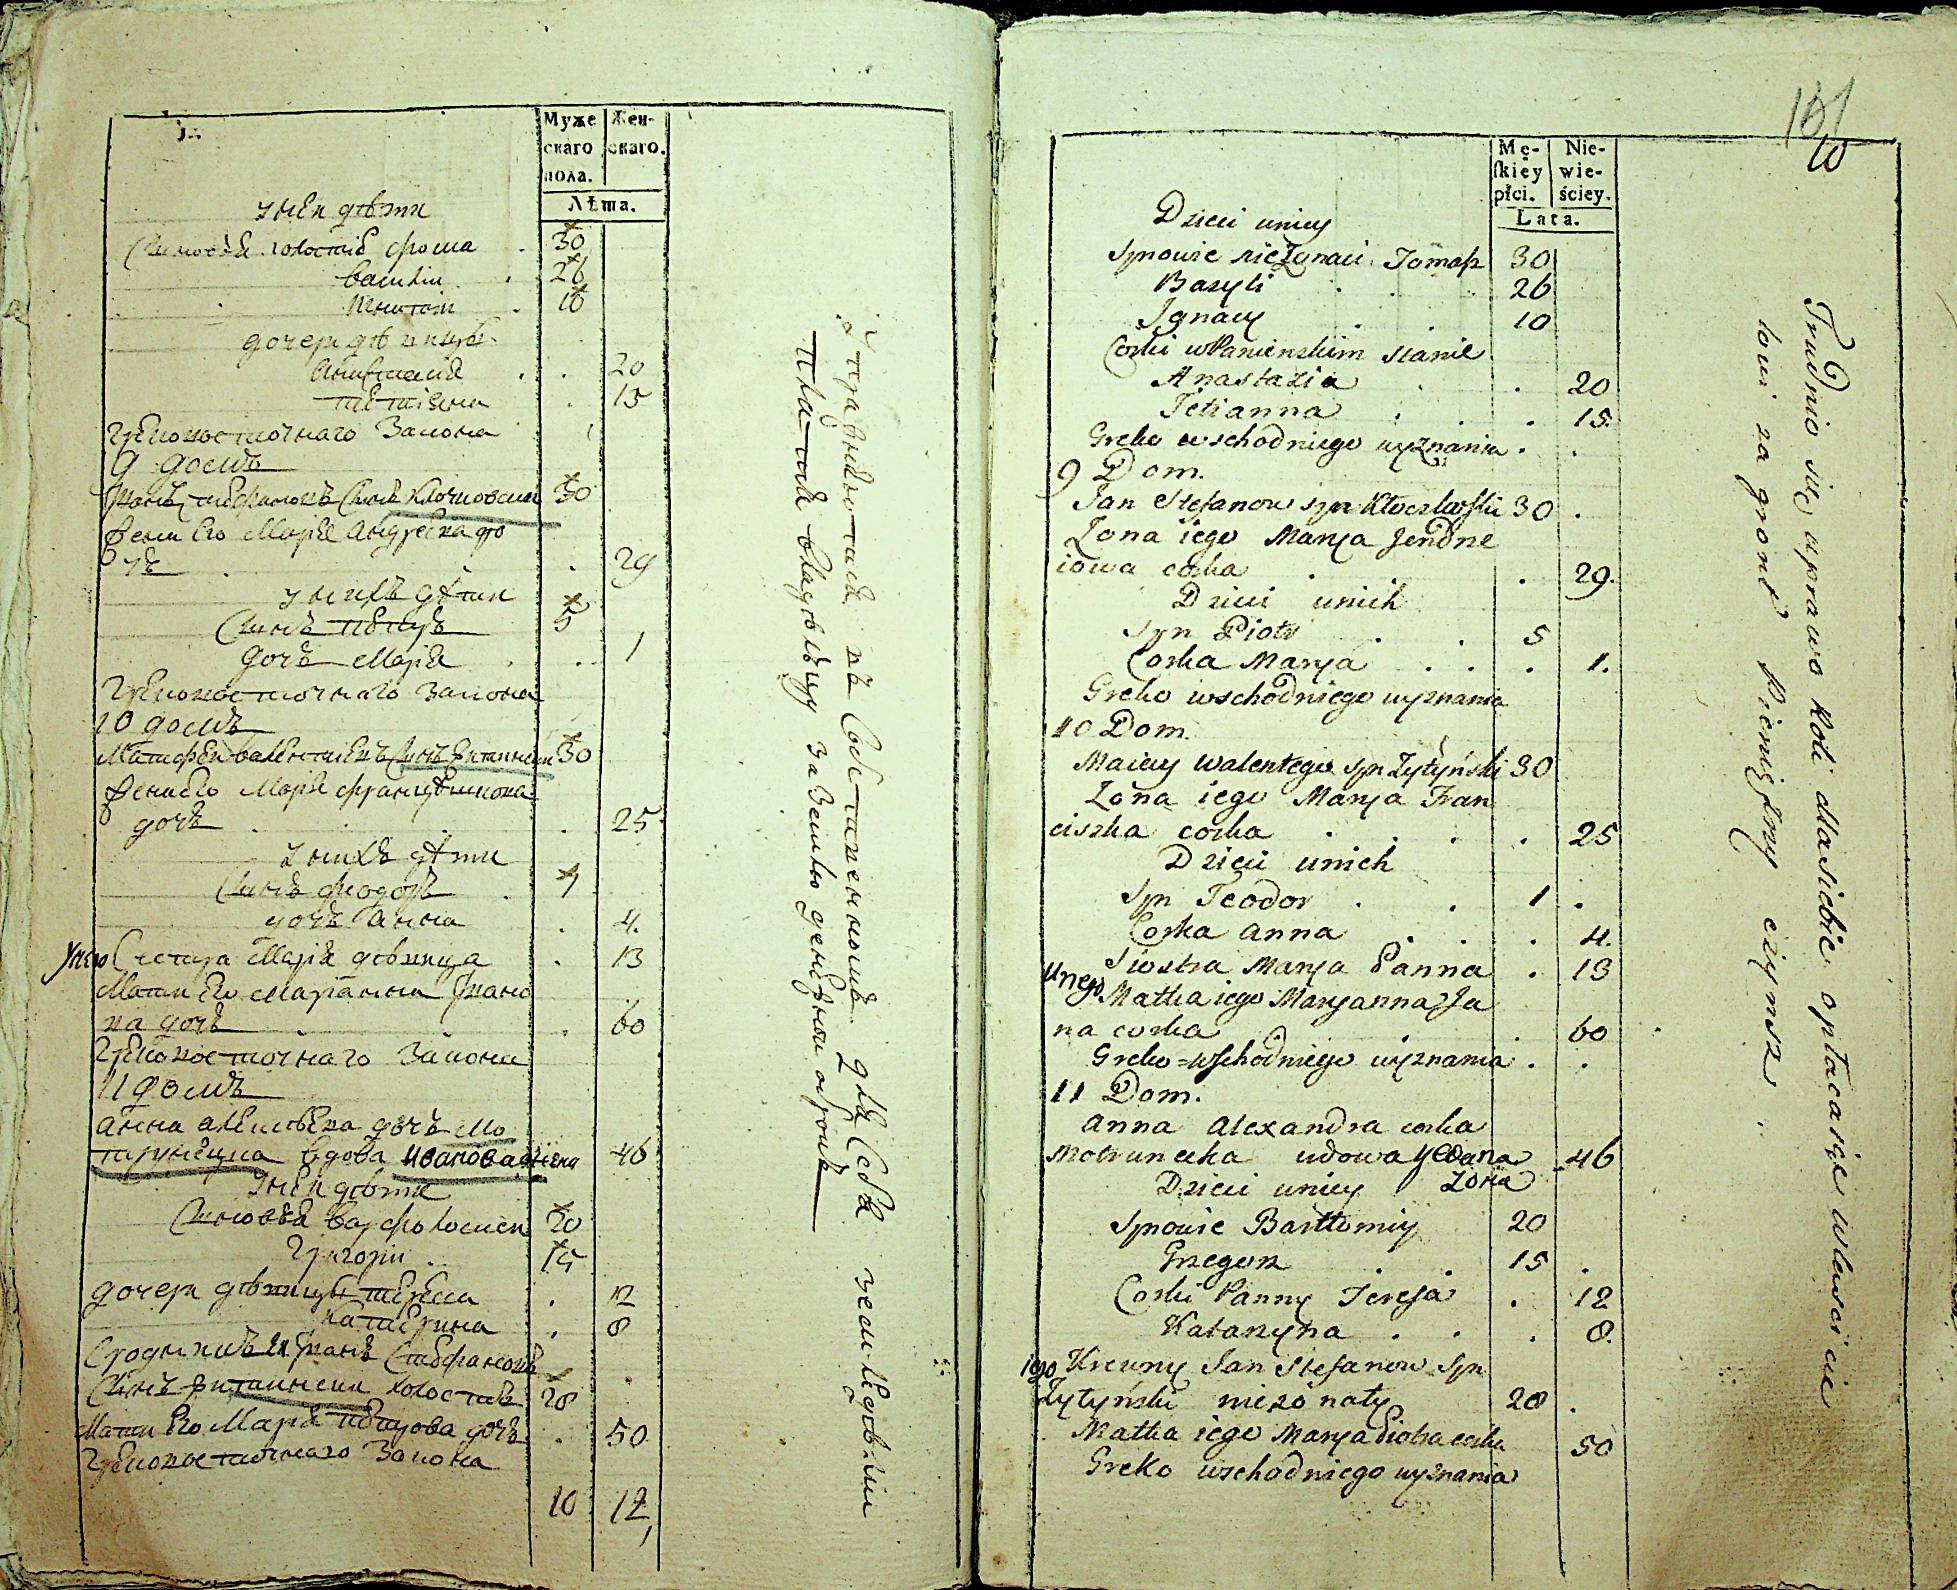 Муже
скаго
пола.
Жен-
скаго.
Лѣта.
у ней дѣти
Сыновья холостiе фома 30
василiй 26
игнатiй 10
дочери дѣвицы
Анастасiя 20
тетiяна 15
Грековосточнаго Закона
9 домъ
Иванъ стефановъ Сынъ Клочковский 30
жена Его Марiя Андреева до
чь 29
у нихъ дѣти
Сынъ петръ 5
дочь Марiя 1
Грековосточнаго Закона
10 домъ
Матфей валентiевъ Сынъ житинский 30
жена Его Марiя францишкова
дочь 25
у нихъ дѣти
Сынъ фiодоръ 1
дочь Анна 4.
у него Сестра Марiя дѣвица 13
Мати Его Марiанна Ивано
ва дочь 60
Грековосточнаго Закона
11 домъ
Анна Алексѣева дочь Мо
трунецка вдова Ивановая жена 46
у ней дѣти
Сыновья варфоломей 20
Григорiй 15
дочери дѣвицы тереса 12
катерина 8
Сродникъ Ея Иванъ Стефановъ
Сынъ житинский холостый 28
Мати Его Марiя петрова дочь 50
Грековосточнаго Закона
10 12
Управляются въ Собственномъ для себя земледѣлiи
платятъ владѣльцу за Землю денежной оброкъ
151
10
Mę-
skiey
płci.
Nie-
wie-
ściey.
Lata.
Dzieci uniey
Synowie nieżonaci Tomasz 30
Bazyli 26
Ignacy 10
Corki w Panienskim stanie
Anastazia 20
Tetianna 15.
Greko wschodniego wyznania
9 Dom.
Jan Stefanow syn Kłoczkowski 30
Zona iego Marya Jendrze
iowa corka 29.
Dzieci unich
Syn Piotr 5
Corka Marya 1.
Greko wschodniego wyznania
10 Dom.
Maciey Walentego syn Żytyński 30
Zona iego Marya Fran
ciszka corka 25
Dzieci unich
Syn Teodor 1
Corka Anna 4.
unego Siostra Marya Panna 13
Matka iego Maryanna Ja
na corka 60
Greko=wschodniego wyznania
11 Dom.
Anna Alexandra corka
Motrunecka wdowa Ywana żona 46
Dzieci uniey
Synowie Bartłomiy 20
Grzegorz 15
Corki Panny Teresa 12
Katarzyna 8.
iey Krewny Jan Stefanow Syn
Żytyński nieżonaty 28
Matka iego Marya Piotra corka 50
Greko wschodniego wyznania
Trudnio się uprawo Roli dlasiebie, opłacaiąc właścicie
lowi za gront Pieniężny czynsz